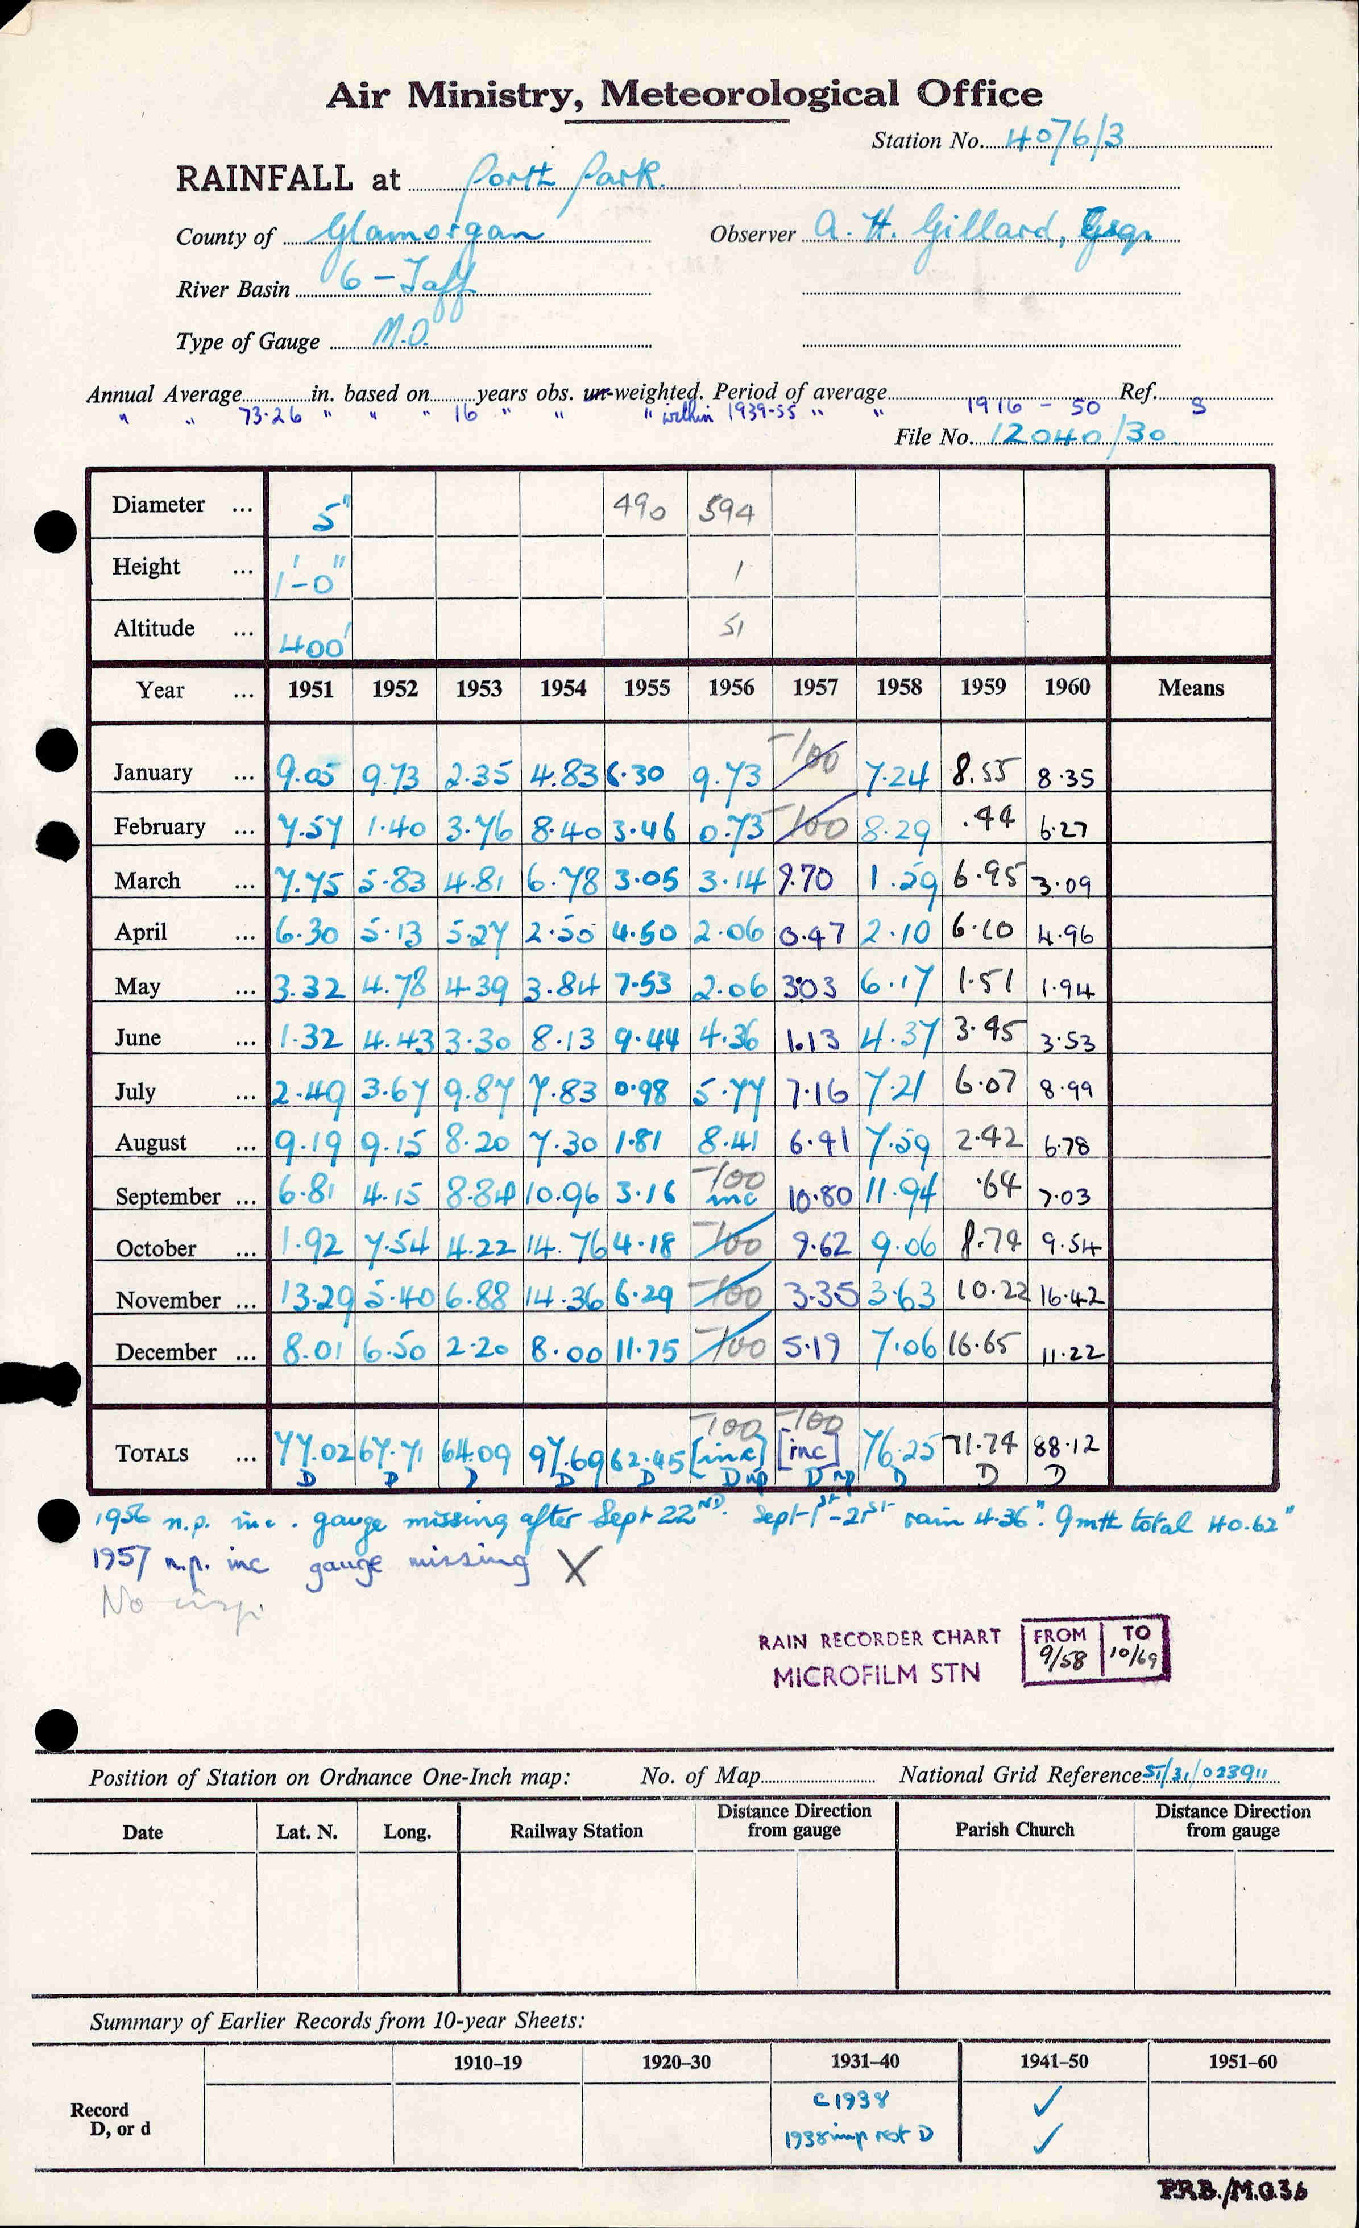 Air Ministry, Meteorological Office
Station No. 4076/3
RAINFALL at Porth Park.
County of Glamorgan Observer A. H. Gillard, Esq.
River Basin 6 - Taff
Type of Gauge M.O.
Annual Average in. based on years obs. un-weighted. Period of average Ref.
" " 73.26 " " " 16 " " " within 1939-55 " " 1916 - 50 S
File No. 12040/30
Diameter ... 5" 490 594
Height ... 1'-0" 1
Altitude ... 400' 51
Year ... 1951 1952 1953 1954 1955 1956 1957 1958 1959 1960 Means
January ... 9.05 9.73 2.35 4.83 6.30 9.73 -100 7.24 8.55 8.35
February ... 7.57 1.40 3.76 8.40 3.46 0.73 -100 8.29 .44 6.27
March ... 7.75 5.83 4.81 6.78 3.05 3.14 9.70 1.59 6.95 3.09
April ... 6.30 5.13 5.27 2.50 4.50 2.06 0.47 2.10 6.10 4.96
May ... 3.32 4.78 4.39 3.84 7.53 2.06 3.03 6.17 1.51 1.94
June ... 1.32 4.43 3.30 8.13 9.44 4.36 1.13 4.37 3.45 3.53
July ... 2.49 3.67 9.87 7.83 0.98 5.77 7.16 7.21 6.07 8.99
August ... 9.19 9.15 8.20 7.30 1.81 8.41 6.41 7.59 2.42 6.78
September ... 6.81 4.15 8.84 10.96 3.16 -100 inc 10.80 11.94 .64 7.03
October ... 1.92 7.54 4.22 14.76 4.18 -100 9.62 9.06 8.74 9.54
November ... 13.29 5.40 6.88 14.36 6.29 -100 3.35 3.63 10.22 16.42
December ... 8.01 6.50 2.20 8.00 11.75 -100 5.19 7.06 16.65 11.22
-100 -100
TOTALS ... 77.02 67.71 64.09 97.69 62.45 [inc] [inc] 76.25 71.74 88.12
D D D D D D np D np D D D
1956 n.p. inc. gauge missing after Sept 22ND. Sept 1st-21st rain 4.36". 9 mth total 40.62"
1957 n.p. inc gauge missing X
No insp.
RAIN RECORDER CHART FROM TO
MICROFILM STN 9/58 10/69
Position of Station on Ordnance One-Inch map: No. of Map National Grid Reference ST/31/023911
Date Lat. N. Long. Railway Station Distance Direction from gauge Parish Church Distance Direction from gauge
Summary of Earlier Records from 10-year Sheets:
1910–19 1920–30 1931–40 1941–50 1951–60
Record c1938 ✓
D, or d 1938 imp not D ✓
P.R.B./M.O.36